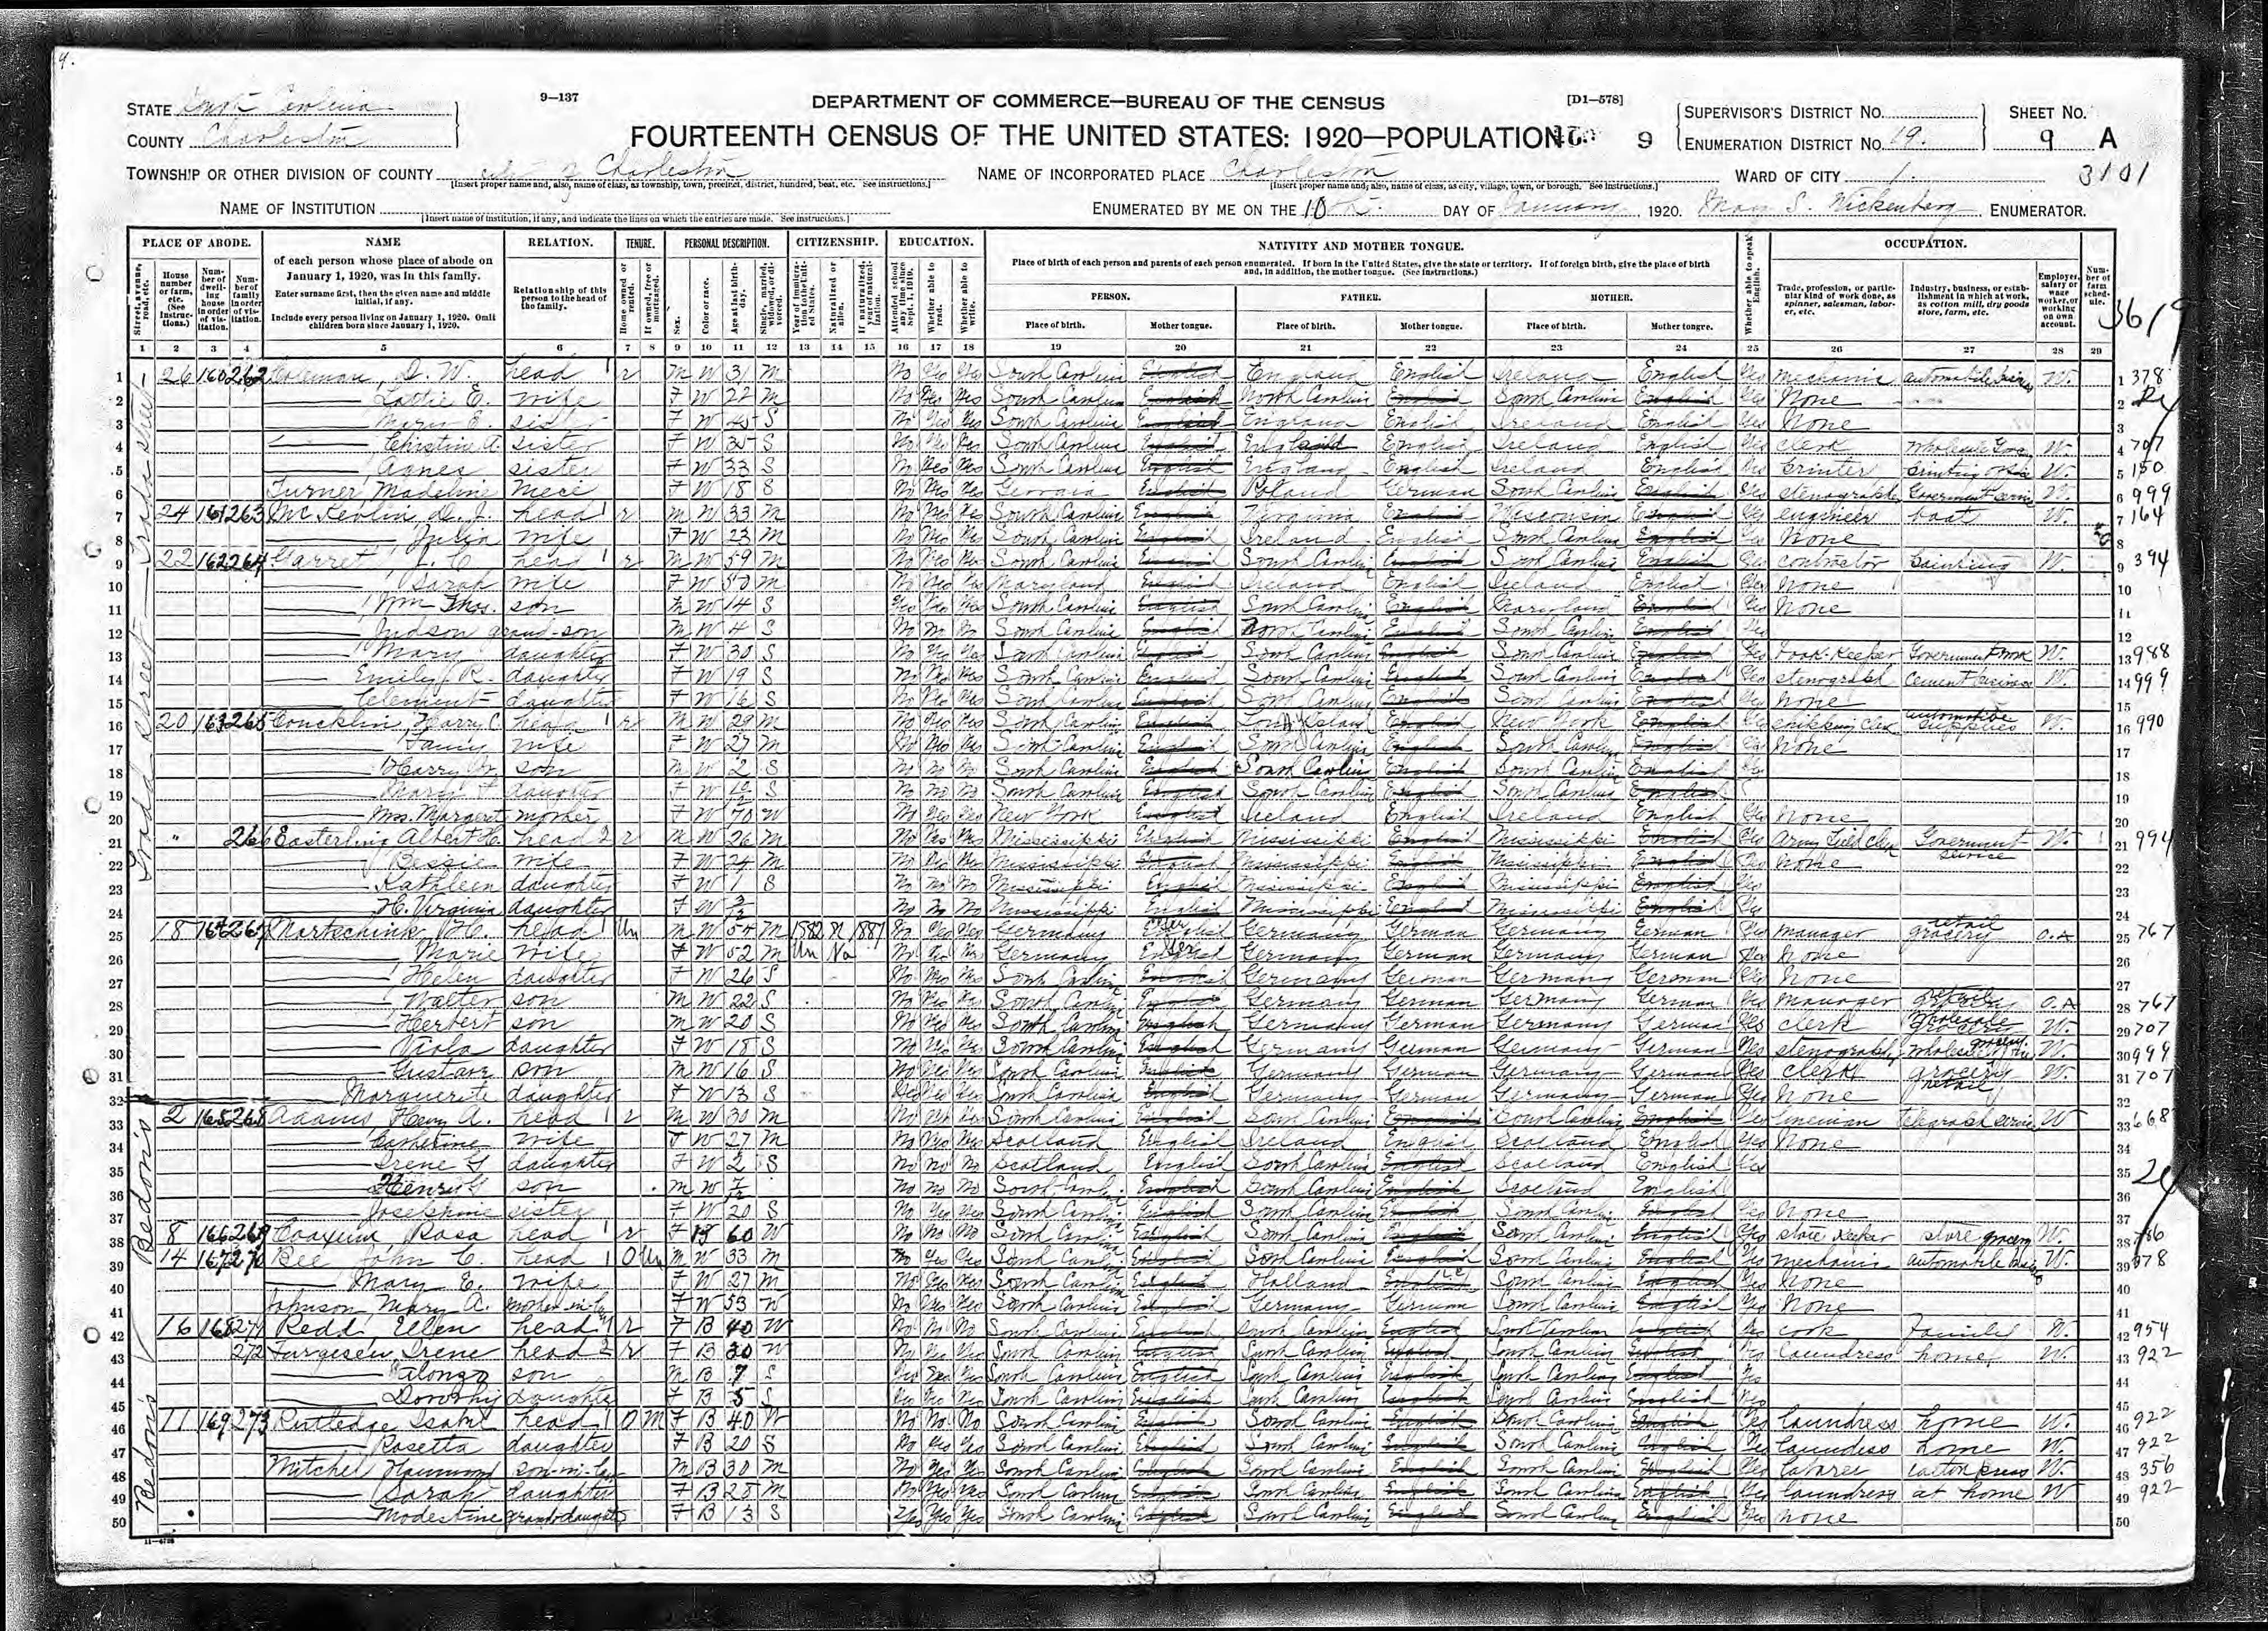 9.
STATE South Carolina
COUNTY Charleston
9—137
DEPARTMENT OF COMMERCE—BUREAU OF THE CENSUS
[D1—578]
FOURTEENTH CENSUS OF THE UNITED STATES: 1920—POPULATION
9
SUPERVISOR'S DISTRICT NO.
ENUMERATION DISTRICT NO. 19.
SHEET NO.
9 A
3101
TOWNSHIP OR OTHER DIVISION OF COUNTY city of Charleston
[Insert proper name and, also, name of class, as township, town, precinct, district, hundred, beat, etc. See instructions.]
NAME OF INCORPORATED PLACE Charleston
[Insert proper name and, also, name of class, as city, village, town, or borough. See instructions.]
WARD OF CITY 1.
NAME OF INSTITUTION
[Insert name of institution, if any, and indicate the lines on which the entries are made. See instructions.]
ENUMERATED BY ME ON THE 10th DAY OF January, 1920. May S. Wickenberg ENUMERATOR.
PLACE OF ABODE. NAME RELATION. TENURE. PERSONAL DESCRIPTION. CITIZENSHIP. EDUCATION. NATIVITY AND MOTHER TONGUE. OCCUPATION.
of each person whose place of abode on January 1, 1920, was in this family.
Enter surname first, then the given name and middle initial, if any.
Include every person living on January 1, 1920. Omit children born since January 1, 1920.
Relationship of this person to the head of the family.
Place of birth of each person and parents of each person enumerated. If born in the United States, give the state or territory. If of foreign birth, give the place of birth and, in addition, the mother tongue. (See instructions.)
PERSON. FATHER. MOTHER.
Place of birth. Mother tongue. Place of birth. Mother tongue. Place of birth. Mother tongue.
Trade, profession, or particular kind of work done, as spinner, salesman, laborer, etc.
Industry, business, or establishment in which at work, as cotton mill, dry goods store, farm, etc.
Employer, salary or wage worker, or working on own account.
Number of farm schedule.
3619
1 2 3 4 5 6 7 8 9 10 11 12 13 14 15 16 17 18 19 20 21 22 23 24 25 26 27 28 29
Tradd street
1 26 160 262 Coleman, D. W. head 1 r M W 31 M No Yes Yes South Carolina English England English Ireland English Yes mechanic W. 1 378
2 Lottie E. wife F W 22 M No Yes Yes South Carolina English North Carolina English South Carolina English Yes None 2
3 Mary E. sister F W 45 S No Yes Yes South Carolina English England English Ireland English Yes None 3
4 Christine A. sister F W 35 S No Yes Yes South Carolina English England English Ireland English Yes clerk W. 4 707
5 Agnes sister F W 33 S No Yes Yes South Carolina English England English Ireland English Yes printer printing office W. 5 150
6 Turner, Madeline niece F W 18 S No Yes Yes Georgia English Poland German South Carolina English Yes stenographer Government service W. 6 999
7 24 161 263 head 1 r M W 33 M No Yes Yes South Carolina English Virginia English Wisconsin English Yes engineer boat W. 7 164
8 Julia wife F W 23 M No Yes Yes South Carolina English Ireland English South Carolina English Yes None 8
9 22 162 264 Garret, L. C. head 1 r M W 59 M No Yes Yes South Carolina English South Carolina English South Carolina English Yes contractor painting W. 9 394
10 Sarah wife F W 50 M No Yes Yes Maryland English Ireland English Ireland English Yes None 10
11 Wm Thos. son M W 14 S Yes Yes Yes South Carolina English South Carolina English Maryland English Yes None 11
12 Judson grand-son M W 4 S No No No South Carolina English North Carolina English South Carolina English Yes 12
13 Mary daughter F W 30 S No Yes Yes South Carolina English South Carolina English South Carolina English Yes book-keeper Government work W. 13 988
14 Emily R. daughter F W 19 S No Yes Yes South Carolina English South Carolina English South Carolina English Yes stenograph W. 14 999
15 Clement daughter F W 16 S No Yes Yes South Carolina English South Carolina English South Carolina English Yes None 15
16 20 163 265 Coucklin, Harry C. head 1 r M W 29 M No Yes Yes South Carolina English Long Island English New York English Yes shipping clerk automotive supplies W. 16 990
17 Fanny wife F W 27 M No Yes Yes South Carolina English South Carolina English South Carolina English Yes None 17
18 Harry Jr. son M W 2 S No No No South Carolina English South Carolina English South Carolina English 18
19 Mary F daughter F W S No No No South Carolina English South Carolina English South Carolina English 19
20 Mrs. Margaret mother F W 70 W No Yes Yes New York English Ireland English Ireland English Yes None 20
21 " 266 Easterling Albert C. head 2 r M W 26 M No Yes Yes Mississippi English Mississippi English Mississippi English Yes Army Field Clerk Government service W. 21 994
22 Bessie wife F W 24 M No Yes Yes Mississippi English Mississippi English Mississippi English Yes None 22
23 Kathleen daughter F W 1 S No No No Mississippi English Mississippi English Mississippi English 23
24 H. Virginia daughter F W No No No Mississippi English Mississippi English Mississippi English 24
25 18 164 267 Martschink, head 1 Un M W 54 M 1882 N 1887 No Yes Yes Germany Ger Germany German Germany German Yes manager retail grocery O.A 25 767
26 Marie wife F W 52 M Un Na No Yes Yes Germany Ger Germany German Germany German Yes None 26
27 Helen daughter F W 26 S No Yes Yes South Carolina English Germany German Germany German Yes None 27
28 Walter son M W 22 S No Yes Yes South Carolina English Germany German Germany German Yes manager retail O.A 28 767
29 Herbert son M W 20 S No Yes Yes South Carolina English Germany German Germany German Yes clerk wholesale grocery W. 29 707
30 Viola daughter F W 18 S No Yes Yes South Carolina English Germany German Germany German Yes stenograph wholesale grocery W. 30 999
31 Gustave son M W 16 S No Yes Yes South Carolina English Germany German Germany German Yes clerk grocery retail W. 31 707
32 Marguerite daughter F W 13 S Yes Yes Yes South Carolina English Germany German Germany German Yes None 32
Bedon's
33 2 165 268 Adams, Henry A. head 1 r M W 30 M No Yes Yes South Carolina English South Carolina English South Carolina English Yes lineman telegraph service W 33 668
34 Catherine wife F W 27 M No Yes Yes Scotland English Ireland English Scotland English Yes None 34
35 Irene G daughter F W 2 S No No No Scotland English South Carolina English Scotland English Yes 35
36 Henry G son M W 7/12 No No No South Carolina English South Carolina English Scotland English 36
37 Josephine sister F W 20 S No Yes Yes South Carolina English South Carolina English South Carolina English Yes None 37
38 8 166 269 Rosa head 1 r F B 60 W No No No South Carolina English South Carolina English South Carolina English Yes store keeper store grocery W. 38 786
39 14 167 270 Bee John C. head 1 O Un M W 33 M No Yes Yes South Carolina English South Carolina English South Carolina English Yes mechanic automobile W. 39 378
40 Mary E. wife F W 27 M No Yes Yes South Carolina English Holland South Carolina English Yes None 40
41 Johnson, Mary A. mother-in-law F W 53 W No Yes Yes South Carolina English Germany German South Carolina English Yes None 41
42 16 168 271 Redd, Ellen head 1 r F B 40 W No No No South Carolina English South Carolina English South Carolina English Yes cook family W. 42 954
43 272 Irene head 2 r F B 30 W No Yes Yes South Carolina English South Carolina English South Carolina English Yes laundress home W. 43 922
44 Alonzo son M B 7 S Yes South Carolina English South Carolina English South Carolina English Yes 44
45 Dorothy daughter F B 5 S South Carolina English South Carolina English South Carolina English Yes 45
Bedon's
46 11 169 273 Rutledge, Isabel head 1 O M F B 40 W No No No South Carolina English South Carolina English South Carolina English Yes laundress home W. 46 922
47 Rosetta daughter F B 20 S No Yes Yes South Carolina English South Carolina English South Carolina English Yes laundress home W. 47 922
48 Mitchel Hammond son-in-law M B 30 M No Yes Yes South Carolina English South Carolina English South Carolina English Yes laborer cotton press W. 48 356
49 Sarah daughter F B 28 M No Yes Yes South Carolina English South Carolina English South Carolina English Yes laundress at home W 49 922
50 Modestine grand-daughter F B 13 S Yes Yes Yes South Carolina English South Carolina English South Carolina English Yes None 50
11—4728